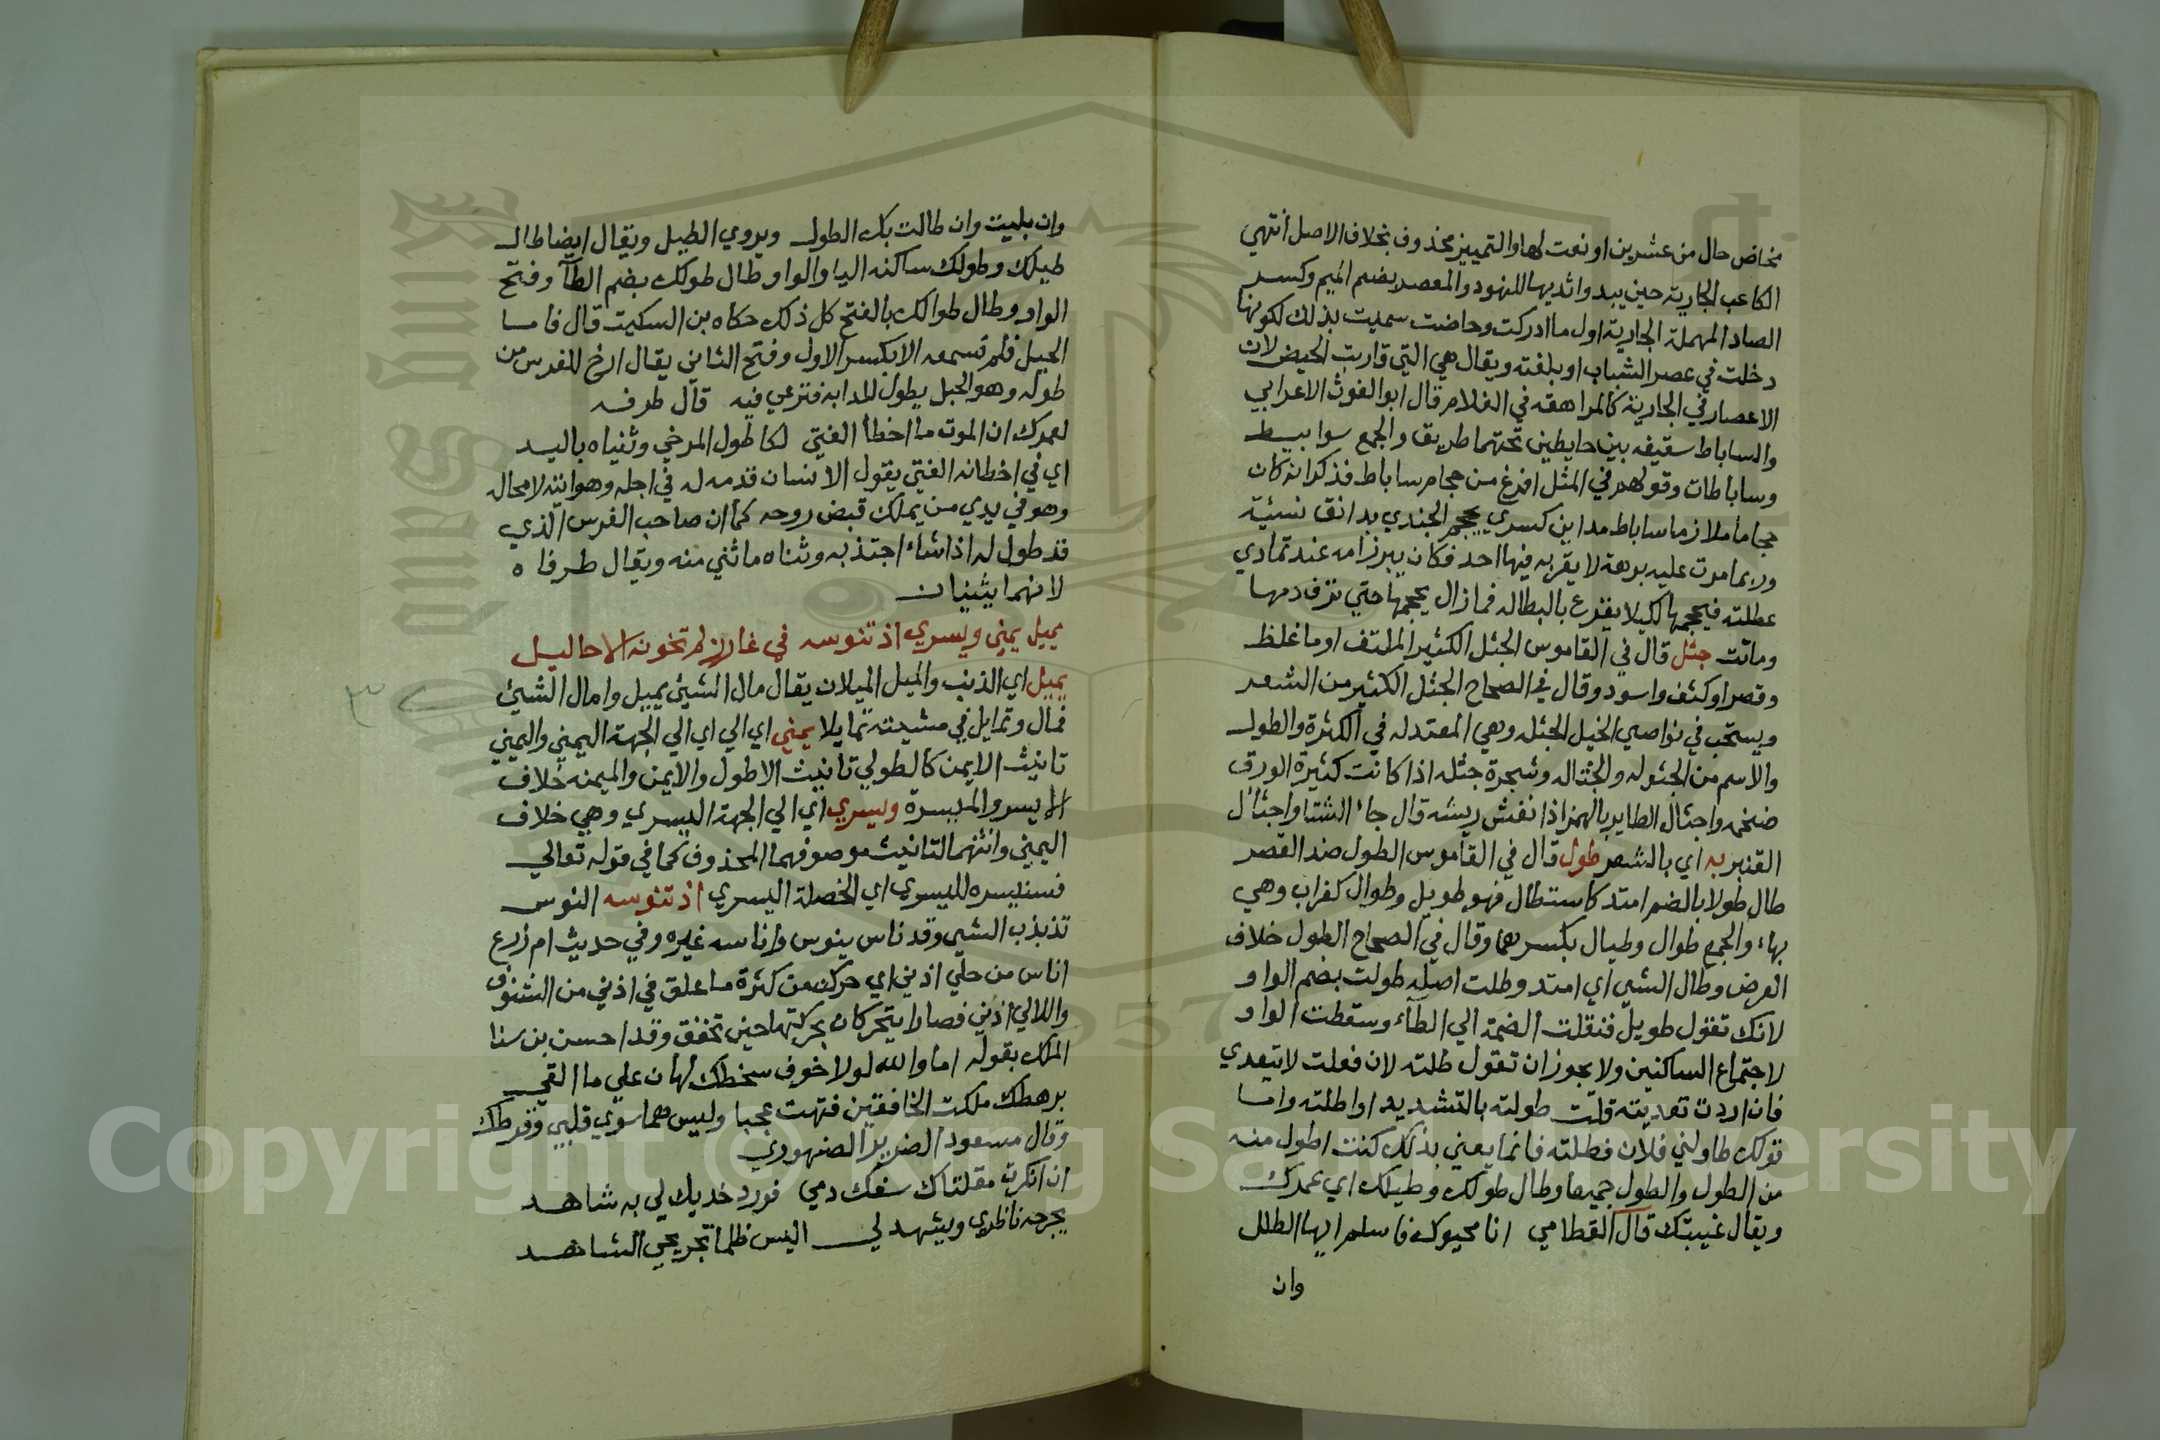 مخاض حال من عشرين او نعت لها والتمييز محذوف بخلاف الاصل انتهي
الكاعب الجارية حين يبدوا ثديها للنهود والمعصر بضم الميم وكسر
الصاد المهملة الجارية اول ما ادركت وحاضت سميت بذلك لكونها
دخلت في عصر الشباب او بلغته ويقال هي التي قاربت الحيض لان
الاعصار في الجارية كالمراهقه في الغلام قال ابو الغوث الاعرابي
والساباط سقيفه بين حايطين تحتهما طريق والجمع سوابيط
وساباطات وقولهم في المثل افرغ من حجام ساباط فذكر انه كان
حجاما ملازما ساباط مداين كسري يحجم الجندي بدانق نسئية
وربما مرت عليه برهة لا يقربه فيها احد فكان يبرز امه عند تمادي
عطلته فيحجمها لكيلا يقرع بالبطاله فما زال يحجمها حتي نزف دمها
وماتت جثل قال في القاموس الجثل الكثير الملتف او ما غلظ
وقصر او كثف واسود وقال في الصحاح الجثل الكثير من الشعر
ويستحب في نواصي الخيل الجثله وهي المعتدله في الكثرة والطول
والاسم من الجثوله والجثاله وشجرة جثله اذا كانت كثيرة الورق
ضخمه واجثال الطاير بالهمز اذا نفش ريشه قال جاء الشتا واجثال
القنبر به اي بالشعر طول قال في القاموس الطول ضد القصر
طال طولا بالضم امتد كاستطال فهو طويل وطوال كغراب وهي
بهاء والجمع طوال وطيال بكسرهما وقال في الصحاح الطول خلاف
العرض وطال الشي اي امتد وطلت اصله طولت بضم الواو
لانك تقول طويل فنقلت الضمة الي الطاء وسقطت الواو
لاجتماع الساكنين ولا يجوز ان تقول طلته لان فعلت لا يتعدي
فان اردت تعديته قلت طولته بالتشديد او اطلته واما
قولك طاولني فلان فطلته فانما يعني بذلك كنت اطول منه
من الطول والطول جميعا وطال طولك وطيلك اي عمرك
ويقال غيبتك قال القطامي انا محيوك فاسلم ايها الطلل
وان
وان بليت وان طالت بك الطول ويروي الطيل ويقال ايضا طال
طيلك وطولك ساكنه اليا والواو وطال طولك بضم الطآ وفتح
الواو وطال طوالك بالفتح كل ذلك حكاه بن السكيت قال فاما
الحبل فلم تسمعه الا بكسر الاول وفتح الثاني يقال ارخ للفرس من
طوله وهو الحبل يطول للدابه فترعي فيه قال طرفه
لعمرك ان الموت ما اخطأ الفتي لكا لطول المرخي وثنياه باليد
اي في اخطائه الفتي يقول الانسان قد مد له في اجله وهو اتيه لا محاله
وهو في يدي من يملك قبض روحه كما ان صاحب الفرس الذي
قد طول له اذا شاء اجتذبه وثناه ما ثني منه ويقال طرفاه
لانهما يثنيان
يميل يمني ويسري اذ تنوسه في غارز لم تخونه الاحاليل
يميل اي الذنب والميل الميلان يقال مال الشيئ يميل وامال الشيئ
فمال وتمايل في مشيته تمايلا يمني اي الي اي الي الجهة اليمني واليمني
تانيث الايمن كالطولي تانيث الاطول والايمن والميمنه خلاف
الايسر والميسرة ويسري اي الي الجهة اليسري وهي خلاف
اليمني وانثهما لتانيث موصوفهما المحذوف كما في قوله تعالي
فسنيسره لليسري اي الخصلة اليسري اذ تنوسه النوس
تذبذب الشي وقد ناس ينوس واناسه غيره وفي حديث ام زرع
اناس من حلي اذني اي حركه من كثرة ما علق في اذني من الشنوف
واللالي اذني فصارا يتحركان بحركتها حين تخفق وقد احسن بن سنا
الملك بقوله اما والله لولا خوف سخطك لهان علي ما القي
برهطك ملكت الخافقين فتهت عجبا وليس هما سوي قلبي وقرطك
وقال مسعود الضرير الصنهوري
ان انكرت مقلتاك سفك دمي فورد خديك لي به شاهد
يجرحه ناظري ويشهد لي اليس ظلما تجريحي الشاهد
King Saud University
1957
Copyright © King Saud University